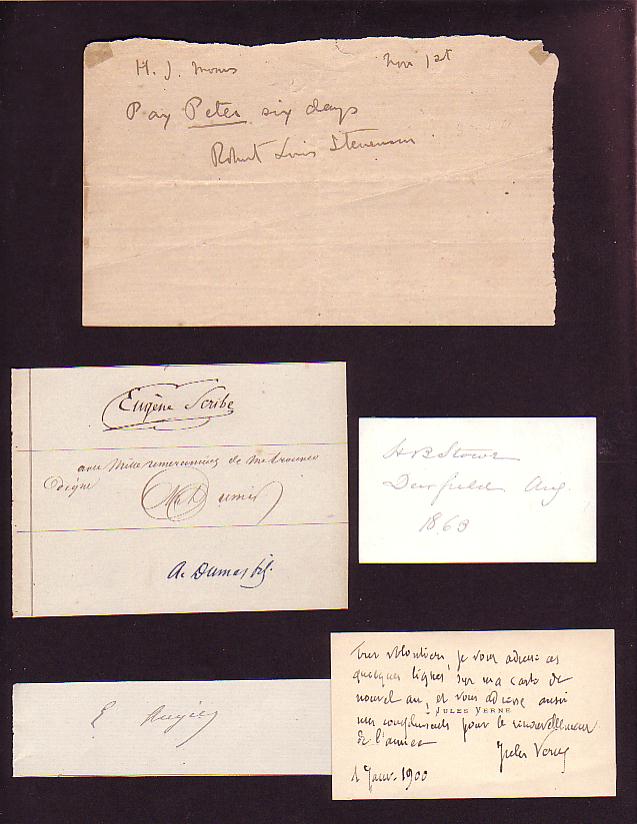 H. J. Moors Nov 1st
Pay Peter six days
Robert Louis Stevenson
Eugène Scribe
avec mille remerciements de me trouver
digne
A. Dumas fils.
H B Stowe
Deerfield Aug.
1863
E Augier
Très volontiers, je vous adresse ces
quelques lignes sur ma carte de
nouvel an, et vous adresse aussi
JULES VERNE
mes compliments pour le renouvellement
de l'année
Jules Verne
1 Janv. 1900